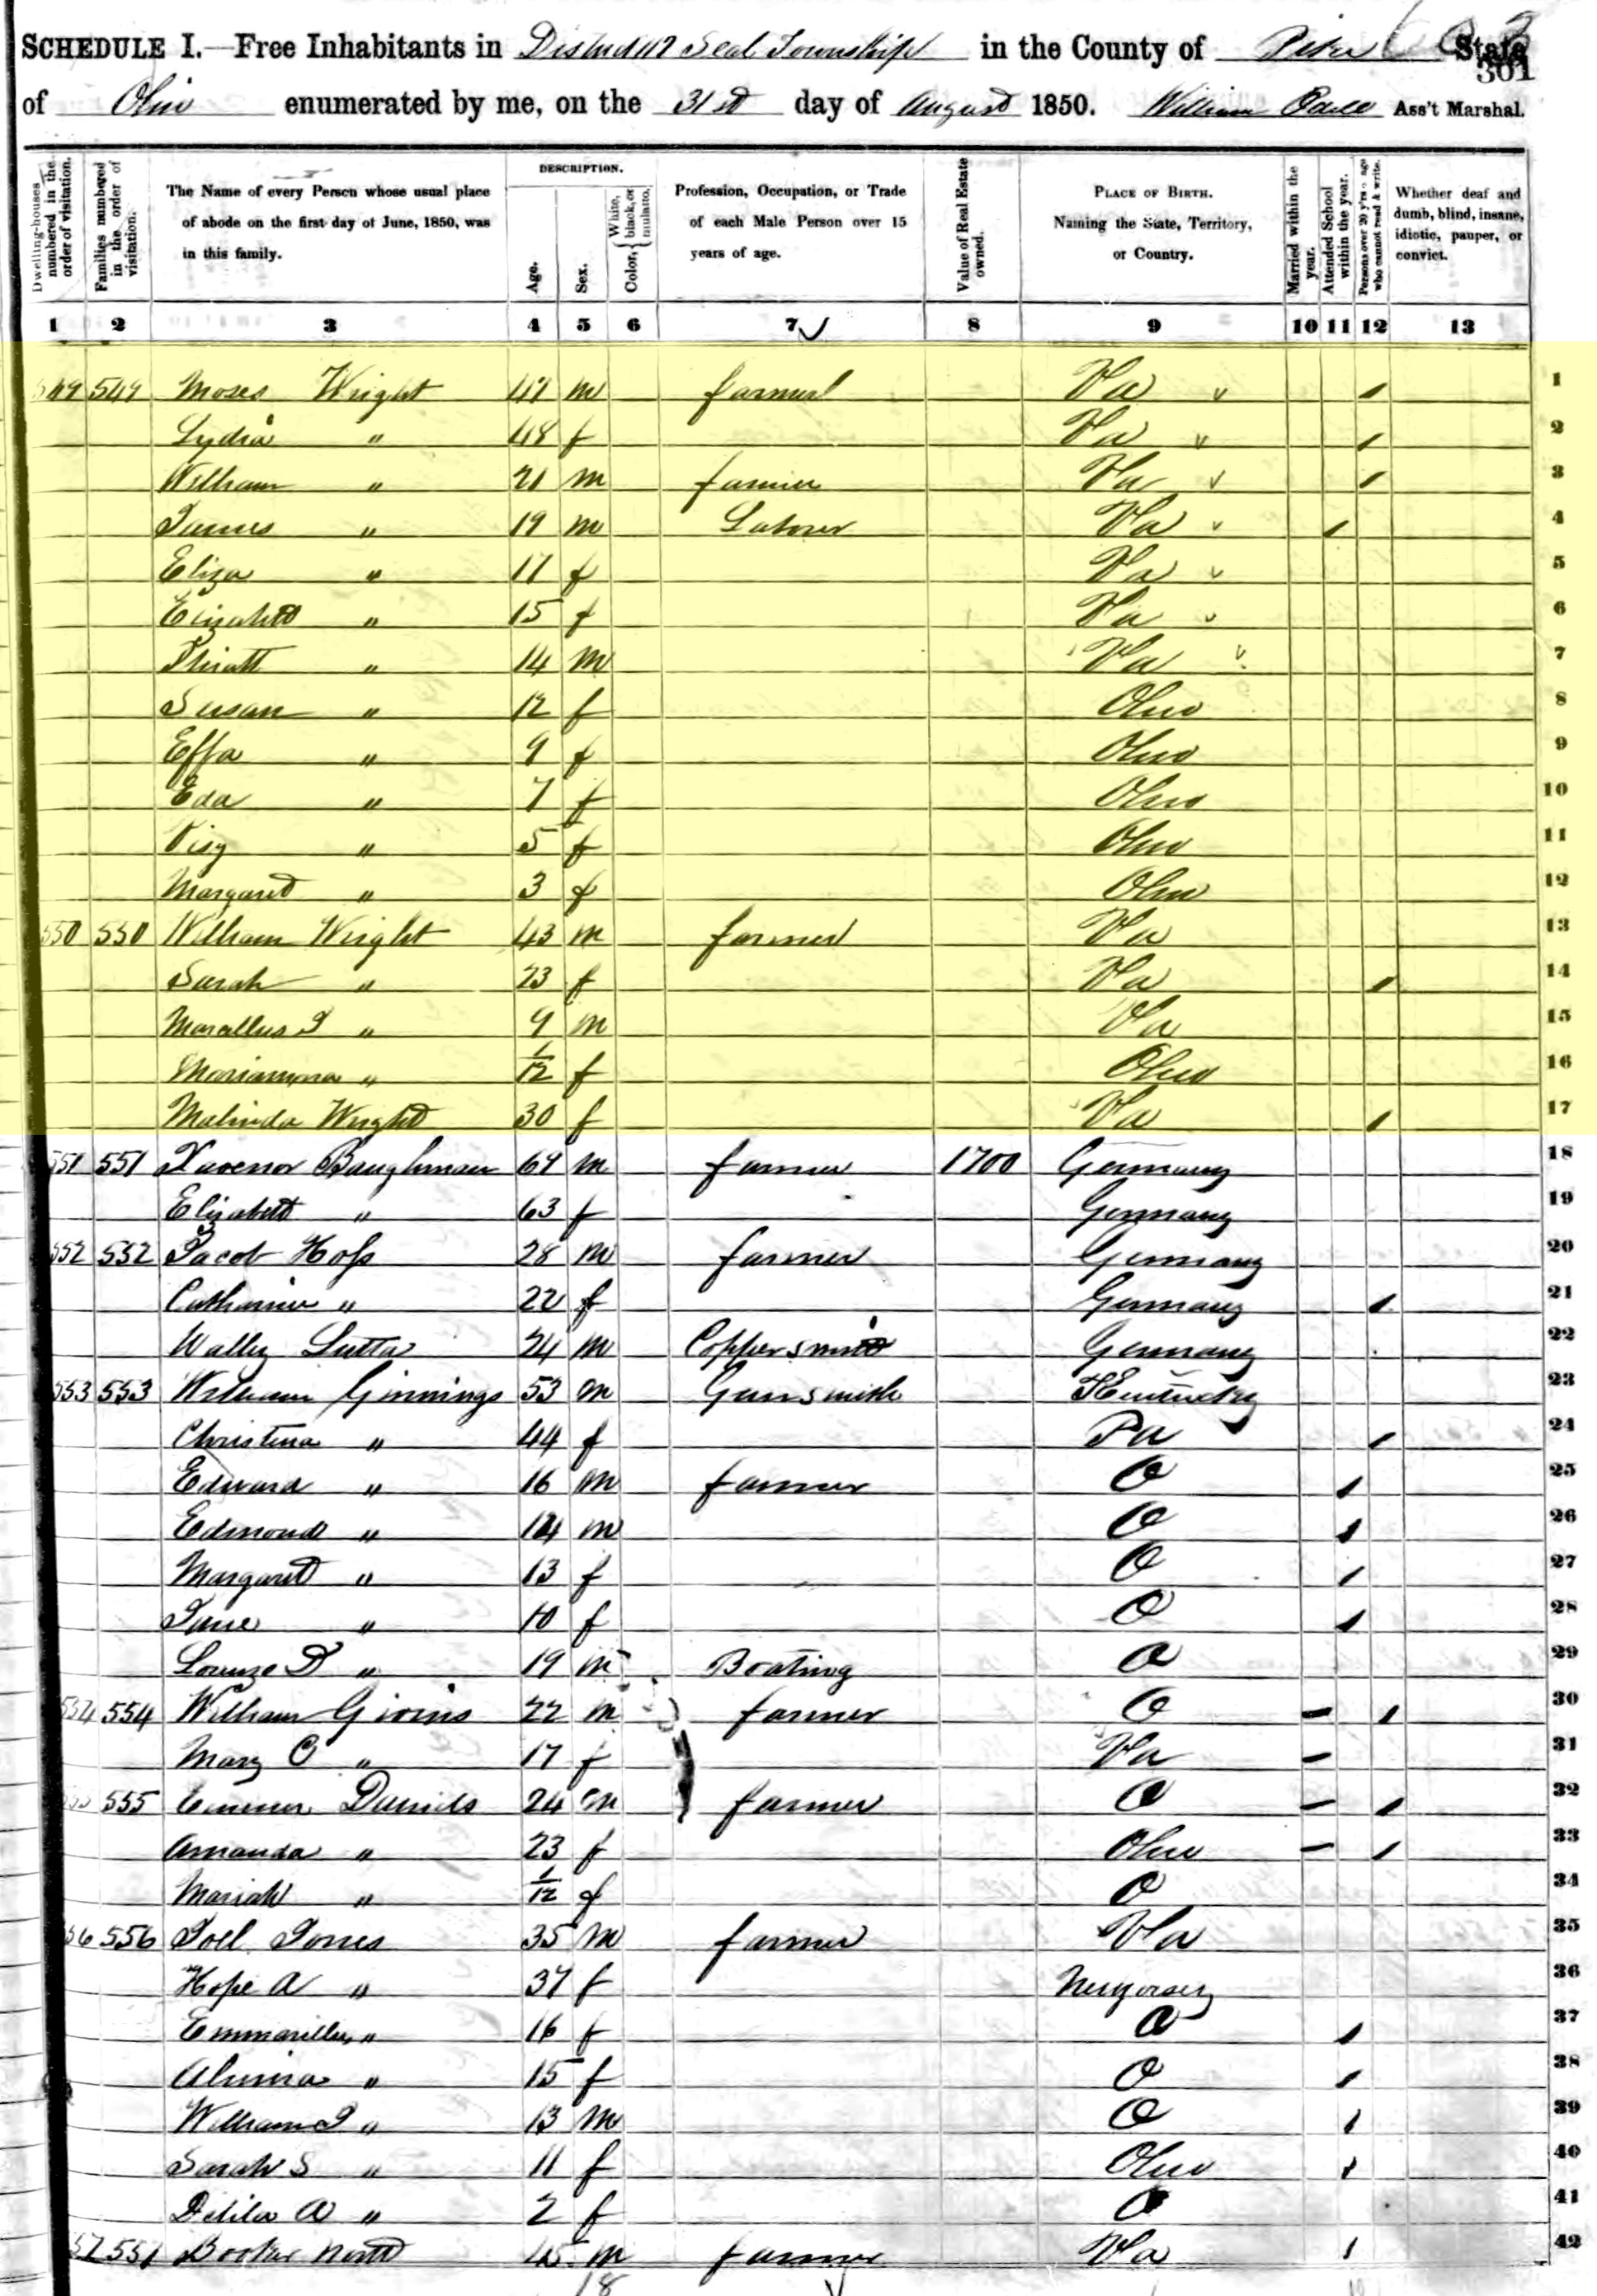 SCHEDULE I.—Free Inhabitants in District 117 Seal Township in the County of Pike State
301
of Ohio enumerated by me, on the 31st day of August 1850. William Ass't Marshal.
Dwelling-houses numbered in the order of visitation.
Families numbered in the order of visitation.
The Name of every Person whose usual place of abode on the first day of June, 1850, was in this family.
DESCRIPTION.
Age.
Sex.
Color, { White, black, or mulatto.
Profession, Occupation, or Trade of each Male Person over 15 years of age.
Value of Real Estate owned.
PLACE OF BIRTH. Naming the State, Territory, or Country.
Married within the year.
Attended School within the year.
Persons over 20 y'rs of age who cannot read & write.
Whether deaf and dumb, blind, insane, idiotic, pauper, or convict.
1 2 3 4 5 6 7 8 9 10 11 12 13
549 549 Moses Wright 47 m farmer Va / 1
Lydia " 48 f Va / 2
William " 21 m farmer Va / 3
James " 19 m Laborer Va / 4
Eliza " 17 f Va 5
Elizabeth " 15 f Va 6
" 14 m Va 7
Susan " 12 f Ohio 8
Effa " 9 f Ohio 9
Eda " 7 f Ohio 10
Visy " 5 f Ohio 11
Margaret " 3 f Ohio 12
550 550 William Wright 43 m farmer Va 13
Sarah " 23 f Va / 14
Marallus J " 9 m Va 15
" 1/12 f Ohio 16
Malinda Wright 30 f Va / 17
551 551 Baughman 69 m farmer 1700 Germany 18
Elizabeth " 63 f Germany 19
552 552 Jacob Hofs 28 m farmer Germany 20
Catharine " 22 f Germany / 21
Lutta 24 m Coppersmith Germany 22
553 553 William Ginnings 53 m Gunsmith Kentucky 23
Christina " 44 f Pa / 24
Edward " 16 m farmer O / 25
Edmond " 14 m O / 26
Margaret " 13 f O / 27
Jane " 10 f O / 28
Lorenzo D " 19 m Boating O 29
554 554 William Givins 22 m farmer O – / 30
Mary C " 17 f Va – 31
555 555 Daniels 24 m farmer O – / 32
Amanda " 23 f Ohio – / 33
Mariah " 1/12 f O 34
556 556 Joel Jones 35 m farmer Va 35
Hope A " 37 f New Jersey 36
Emmarilla " 16 f O / 37
" 15 f O / 38
William J " 13 m O / 39
Sarah S " 11 f Ohio / 40
Delila A " 2 f O 41
557 557 Booker North 45 m farmer Va / 42
18